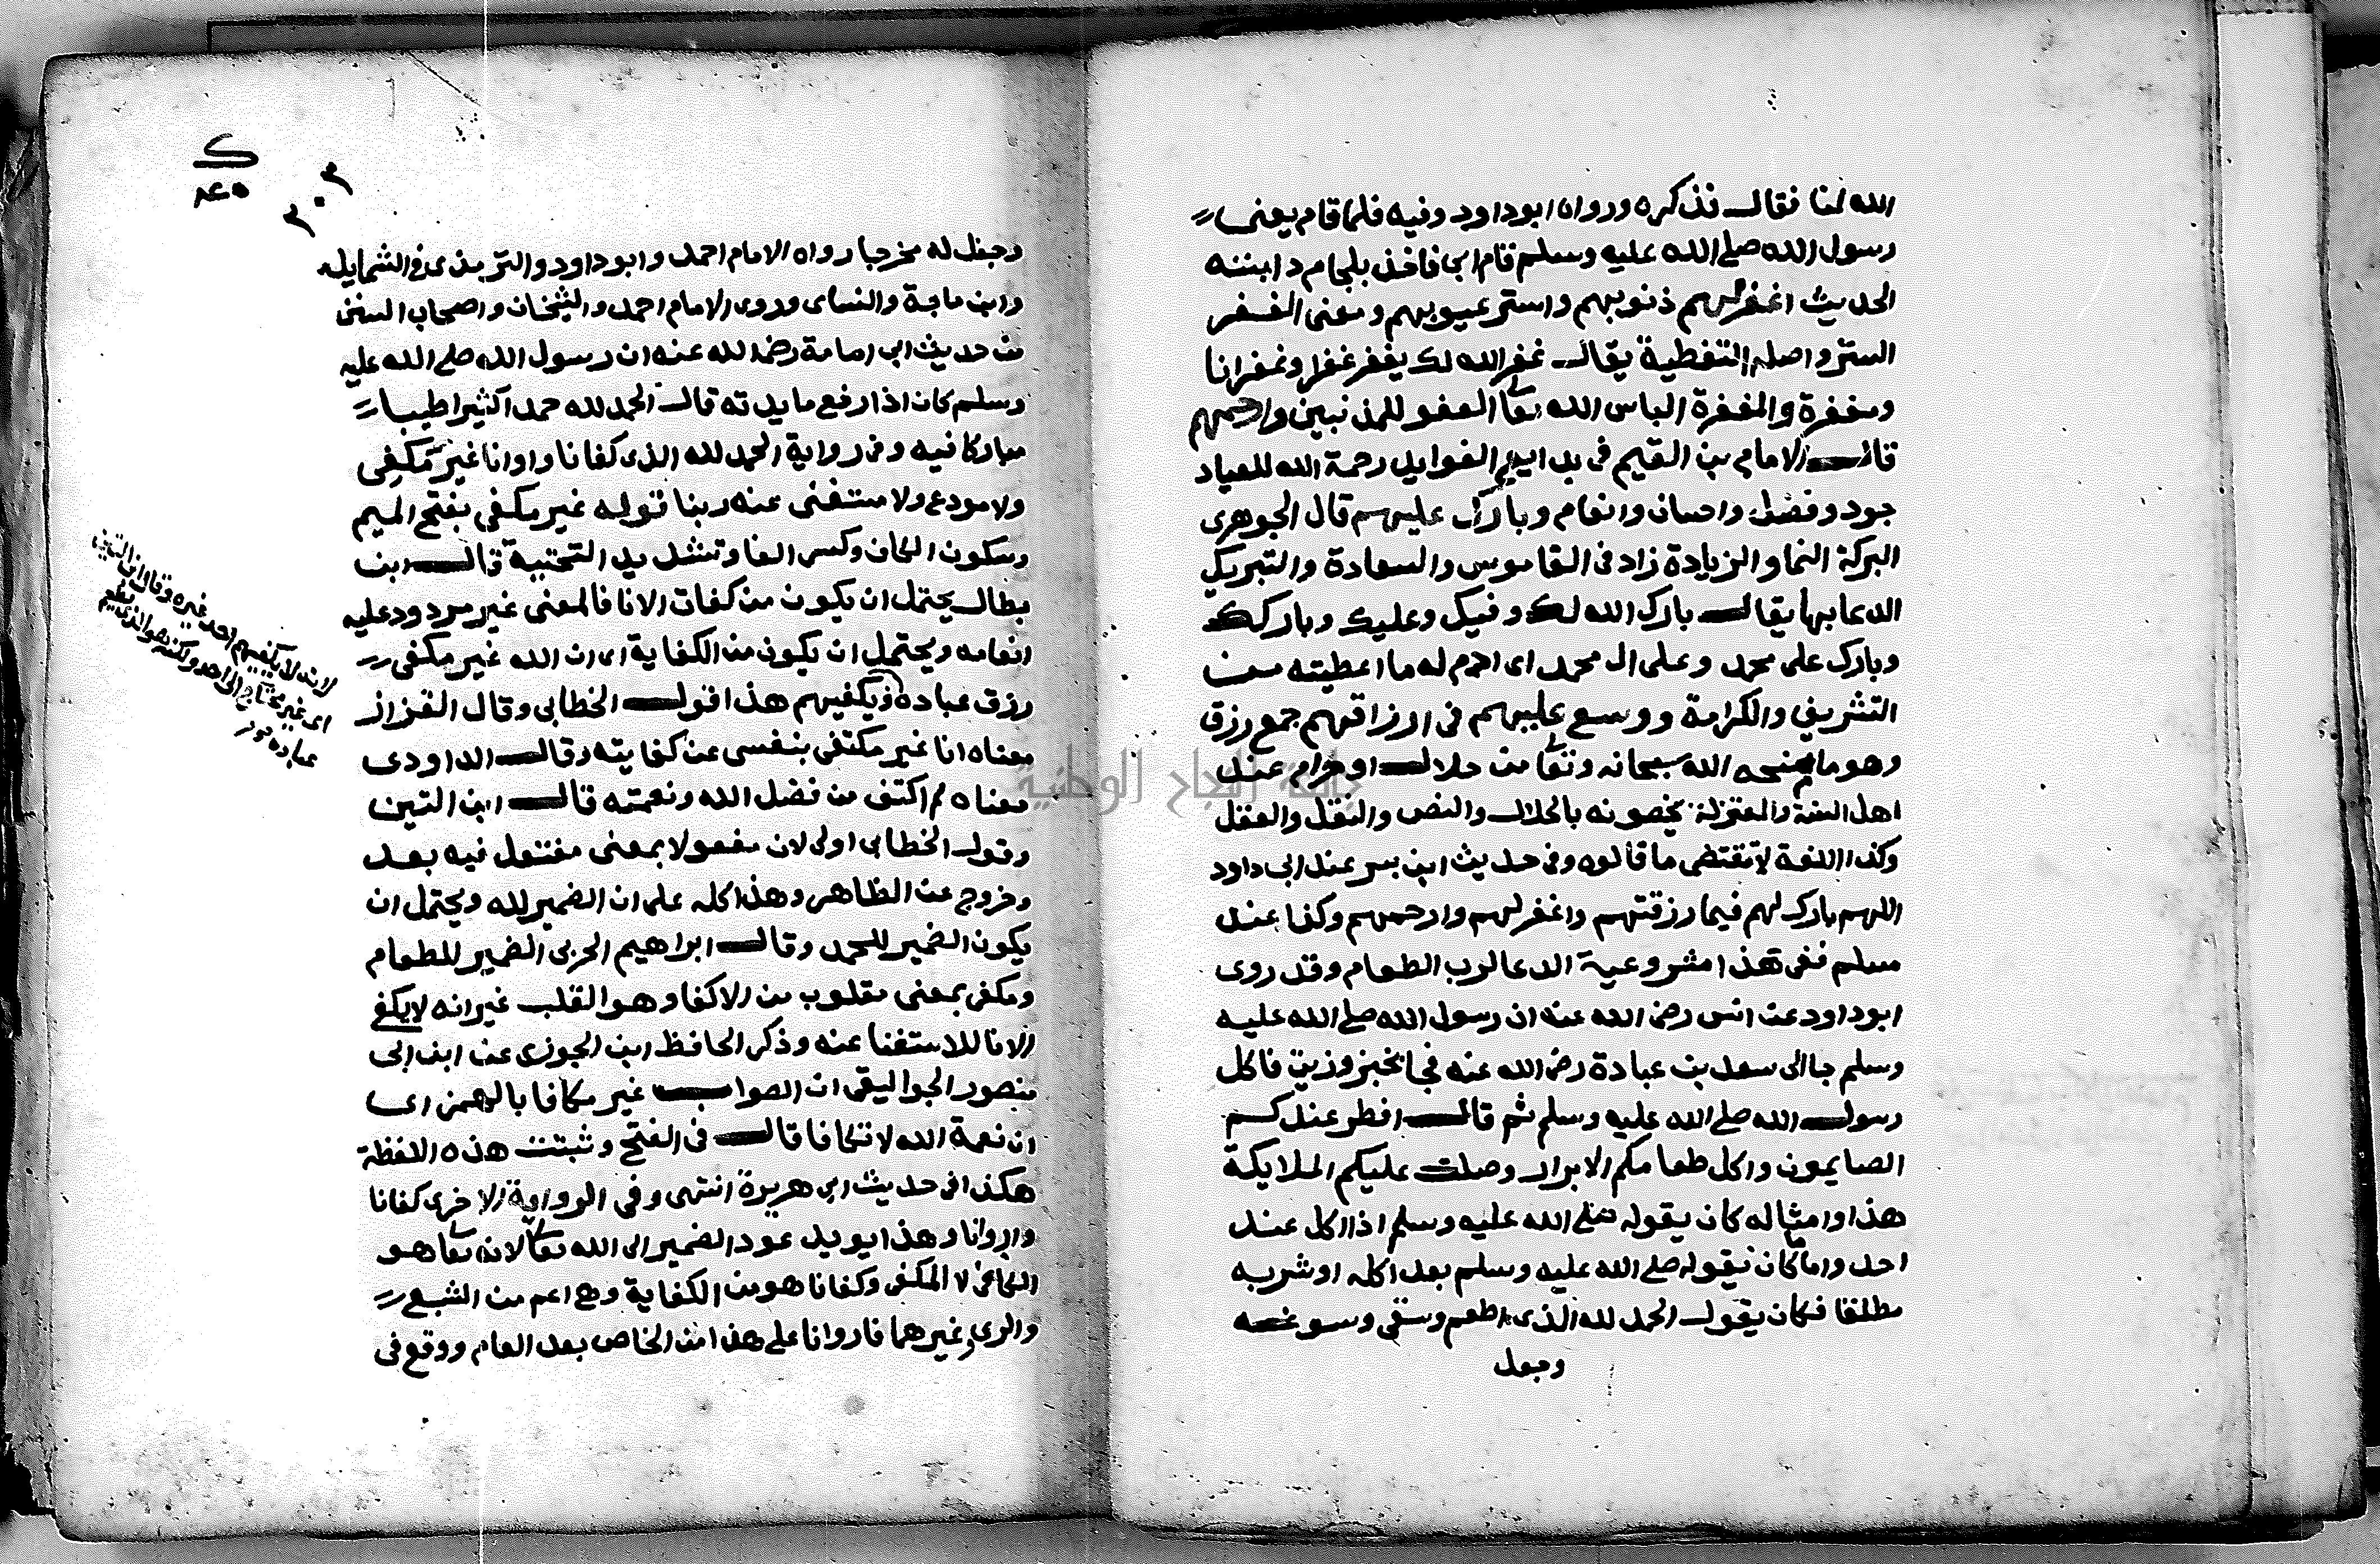 الله لنا فقال فذكره ورواه ابوداود وفيه فلما قام يعني
رسول الله صلى الله عليه وسلم قام ابي فاخذ بلجام دابته
الحديث اغفر لهم ذنوبهم واستر عيوبهم ومعنى الغفر
الستر واصله التغطية يقال غفر الله لك يغفر غفرا وغفرانا
ومغفرة والمغفرة الباس الله تعا العفو للمذنبين وارحمهم
قال الامام بن القيم في بدايع الفوايد رحمة الله للعباد
جود وفضل واحسان وانعام وبارك عليهم قال الجوهرى
البركة النما والزيادة زاد في القاموس والسعادة والتبريك
الدعا بها يقال بارك الله لك وفيك وعليك وباركك
وبارك على محمد وعلى ال محمد اى ادم له ما اعطيته من
التشريف والكرامة ووسع عليهم في ارزاقهم جمع رزق
وهو ما يمنحه الله سبحانه وتعا من حلال او حرام عند
اهل السنة والمعتزلة يخصونه بالحلال والنص والنقل والعقل
وكذا اللغة لا تقتضى ما قالوه وفي حديث ابن بسر عند ابي داود
اللهم بارك لهم فيما رزقتهم واغفر لهم وارحمهم وكذا عند
مسلم ففي هذا مشروعية الدعا لرب الطعام وقد روى
ابوداود عن انس رضى الله عنه ان رسول الله صلى الله عليه
وسلم جا الى سعد بن عبادة رضى الله عنه فجا بخبز وزيت فاكل
رسول الله صلى الله عليه وسلم ثم قال افطر عندكم
الصايمون واكل طعامكم الابرار وصلت عليكم الملايكة
هذا وامثاله كان يقوله صلى الله عليه وسلم اذا اكل عند
احد واما ما كان يقوله صلى الله عليه وسلم بعد اكله او شربه
مطلقا فكان يقول الحمد لله الذى اطعم وسقى وسوغه
وجعل
ك
٨٤٥
٣٠٣
وجعل له مخرجا رواه الامام احمد وابوداود والترمذى في الشمايل
وابن ماجة والنساى وروى الامام احمد والشيخان واصحاب السنن
من حديث ابي امامة رضى الله عنه ان رسول الله صلى الله عليه
وسلم كان اذا رفع مايدته قال الحمد لله حمدا كثيرا طيبا
مباركا فيه وفي رواية الحمد لله الذى كفانا واوانا غير مكفى
ولا مودع ولا مستغنى عنه ربنا قوله غير مكفي بفتح الميم
وسكون الكاف وكسر الفا وتشديد التحتية قال ابن
بطال يحتمل ان يكون من كفات الانا فالمعنى غير مردود عليه
انعامه ويحتمل ان يكون من الكفاية اى ان الله غير مكفى
رزق عباده ويكفيهم هذا قول الخطابى وقال القزاز
معناه انا غير مكتفى بنفسى عن كفايته وقال الداودى
معناه لم اكتف من فضل الله ونعمته قال ابن التين
وقول الخطابي اولى لان مفعولا بمعنى مفتعل فيه بعد
وخروج عن الظاهر وهذا كله على ان الضمير لله ويحتمل ان
يكون الضمير للحمد وقال ابراهيم الحربى الضمير للطعام
ومكفى بمعنى مقلوب من الاكفا وهو القلب غير انه لا يكفي
الانا للاستغنا عنه وذكر الحافظ ابن الجوزى عن ابن ابى
منصور الجواليقى ان الصواب غير مكافا بالهمز اى
ان نعمة الله لا تكافا قال في الفتح وثبتت هذه اللفظة
هكذا في حديث ابي هريرة انتهى وفي الرواية الاخرى كفانا
واروانا وهذا يويد عود الضمير الى الله تعا لانه تعا هو
الكافي لا المكفى وكفانا هو من الكفاية وهي اعم من الشبع
والرى وغيرهما فاروانا على هذا من الخاص بعد العام ووقع في
لانه لا يكفيهم احد غيره وقال ابن التين
اى غير محتاج الى احد ولكنه هو الذى يطعم
عباده
جامعة النجاح الوطنية